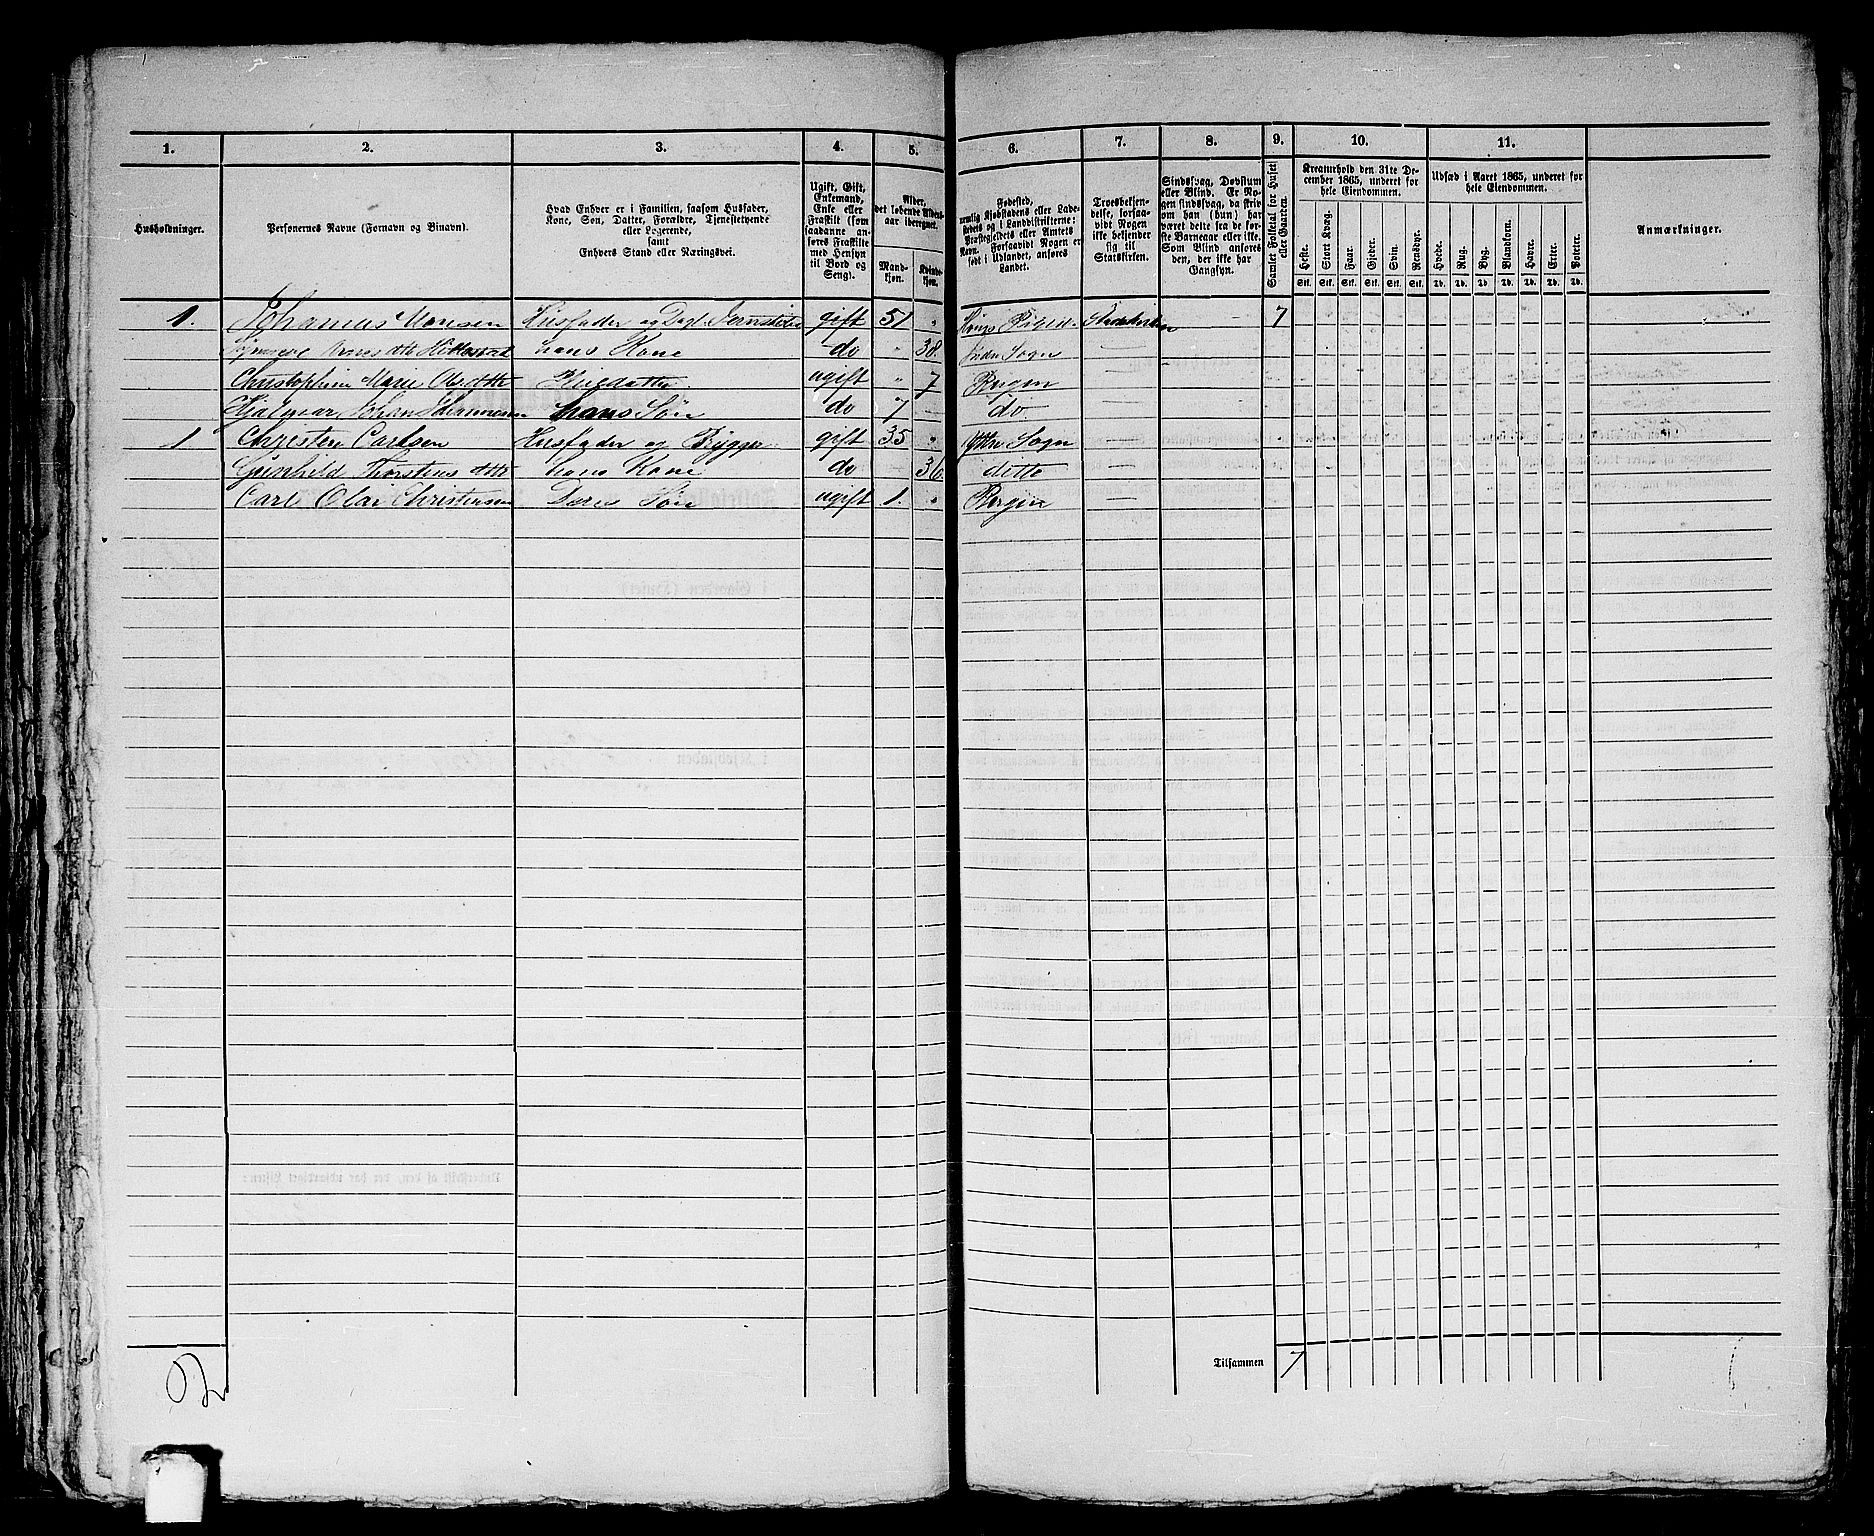 1. 2. 3. 4. 5. 6. 7. 8. 9. 10. 11.
Husholdninger.
Personernes Navne (Fornavn og Binavn).
Hvad Enhver er i Familien, saasom Husfader,
Kone, Søn, Datter, Forældre, Tjenestetyende
eller Logerende,
samt
Enhvers Stand eller Næringsvei.
Ugift, Gift,
Enkemand,
Enke eller
Fraskilt (som
saadanne an-
føres Fraskilte
med Hensyn
til Bord og
Seng).
Alder,
det løbende Alders-
aar iberegnet.
Mand-
kjøn.
Kvinde-
kjøn.
Fødested,
nemlig Kjøbstadens eller Lade-
stedets og i Landdistrikterne:
Præstegjeldets eller Amtets
Navn. Forsaavidt Nogen er
født i Udlandet, anføres
Landet.
Troesbekjen-
delse, forsaa-
vidt Nogen
ikke bekjender
sig til
Statskirken.
Sindssvag, Døvstum
eller Blind. Er No-
gen sindssvag, da skriv
om han (hun) har
været dette fra de før-
ste Barneaar eller ikke.
Som Blind anføres
den, der ikke har
Gangsyn.
Samlet Folketal for Huset
eller Gaarden.
Kreaturhold den 31te De-
cember 1865, underet for
hele Eiendommen.
Heste. Stort Kvæg. Faar. Gjeder. Svin. Rensdyr.
Stk. Stk. Stk. Stk. Stk. Stk.
Udsæd i Aaret 1865, underet for
hele Eiendommen.
Hvede. Rug. Byg. Blandkorn. Havre. Erter. Poteter.
Td. Td. Td. Td. Td. Td. Td.
Anmærkninger.
1. Johannes Monsen Husfader og Dagl gift 51 " Statskirken 7
Arnesdtr hans Kone do " 38 Indre Sogn —
Christophine Marie Olsdttr ugift " 7 Bergen —
Hjalmar Johan hans Søn do 7 — do —
1 Christen Carlsen Husfader og Bygger gift 35 " Yttre Sogn —
Gunhild Thorstensdttr hans Kone do — 36 ditto —
Carl Olai Christensen Deres Søn ugift 1. " Bergen —
Tilsammen 7